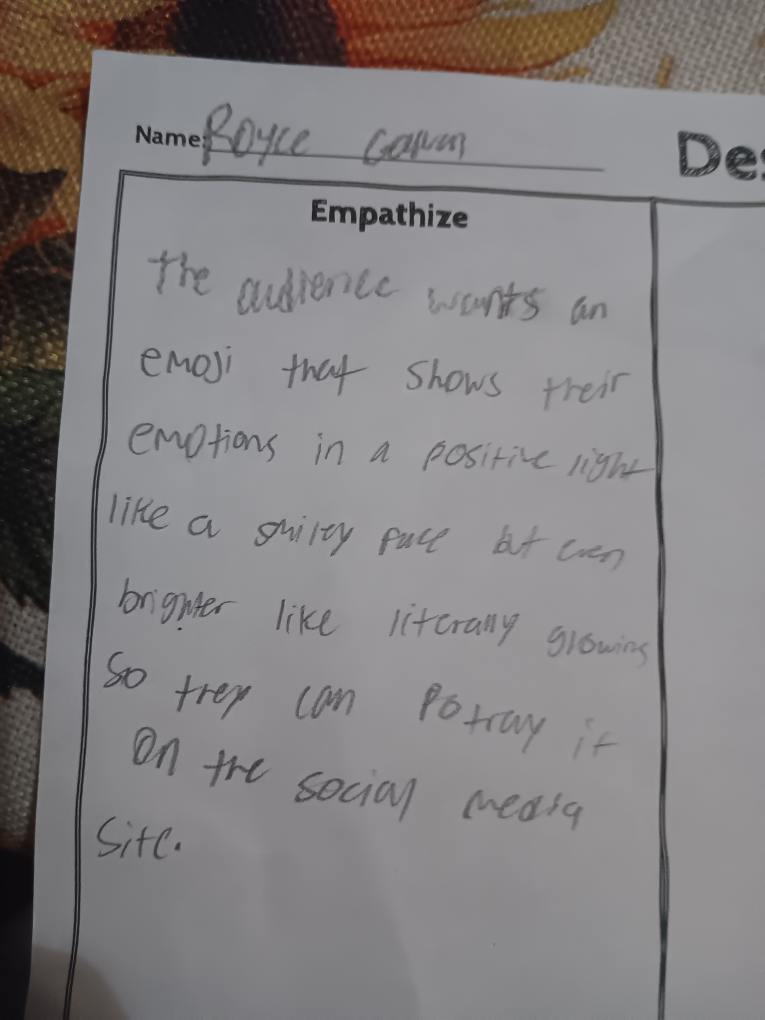 Name: Royce
Des
Empathize
The audience wants an
emoji that shows their
emotions in a positive light
like a smiley face but even
brighter like literally glowing
So they can Potray it
On the social media
Site.